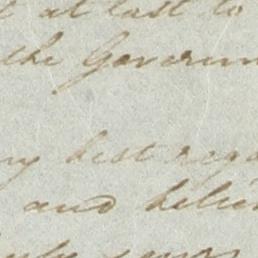 at last to
the Governm
my best rega
and believ